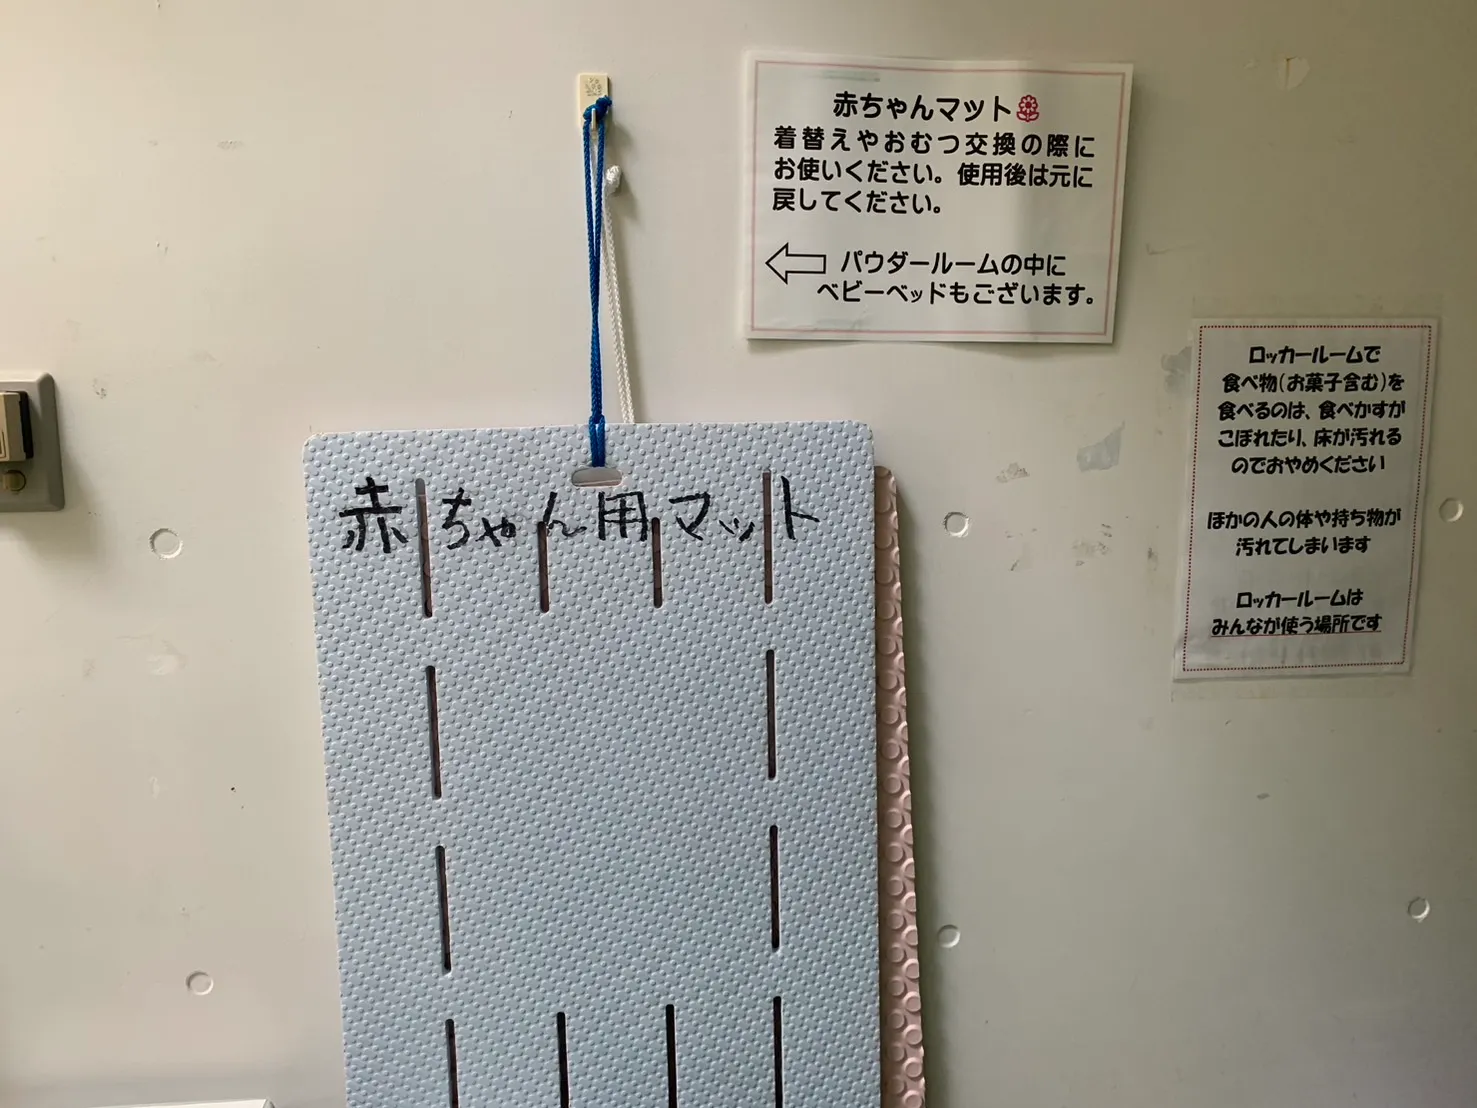 赤ちゃんマット
着替えやおむつ交換の際に
お使いください。使用後は元に
戻してください。
パウダールームの中に
ベビーベッドもございます。
ロッカールームで
食べ物(お菓子含む)を
食べるのは、食べかすが
こぼれたり、床が汚れる
のでおやめください
ほかの人の体や持ち物が
汚れてしまいます
ロッカールームは
みんなが使う場所です
赤ちゃん用マット